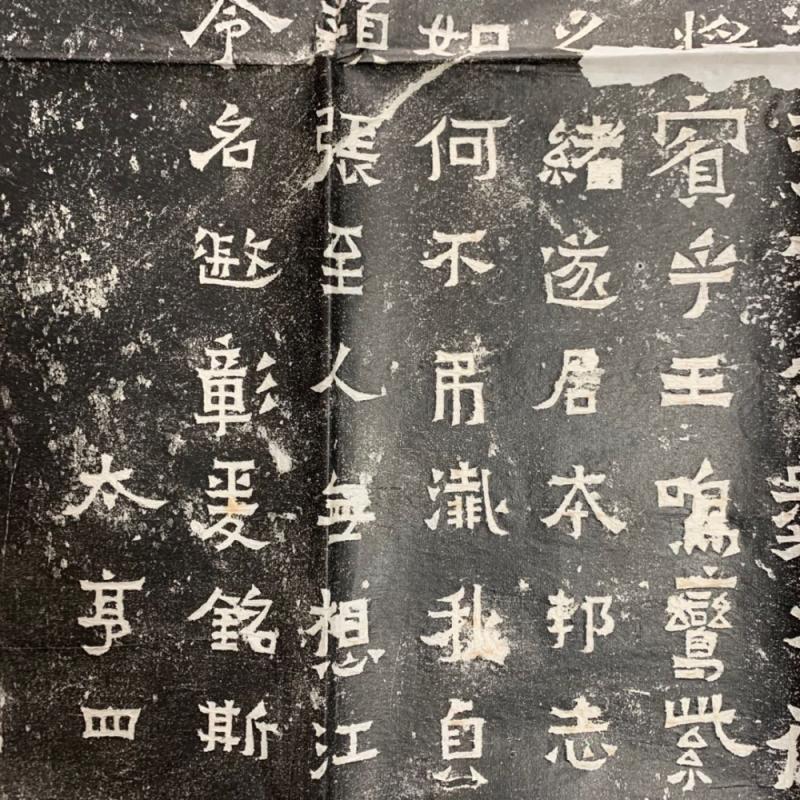 將賓乎王鳴鸞紫
之緒遂居本邦志
如何不弔殲我貞
顏張至人無想江
令名遐彰爰銘斯
太亨四